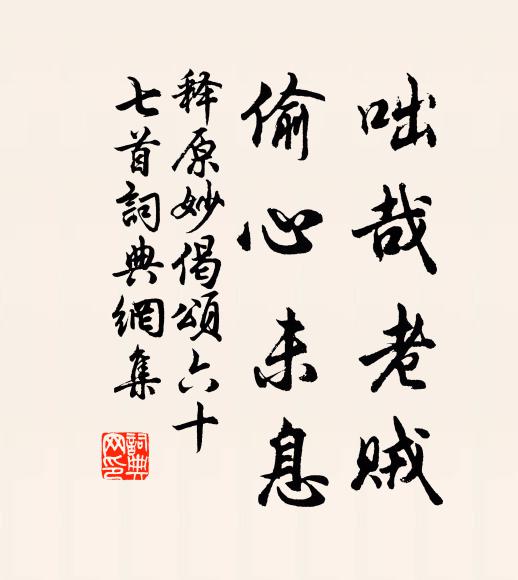 咄哉老贼
偷心未息
释原妙偈颂六十
七首詞典網集
詞典
网印